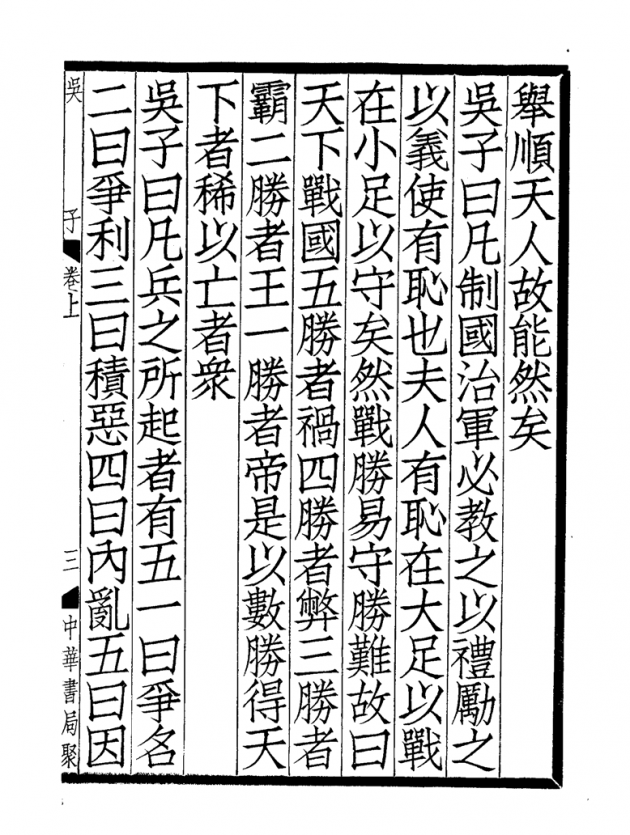 舉順天人故能然矣
吳子曰凡制國治軍必教之以禮勵之
以義使有恥也夫人有恥在大足以戰
在小足以守矣然戰勝易守勝難故曰
天下戰國五勝者禍四勝者弊三勝者
霸二勝者王一勝者帝是以數勝得天
下者稀以亡者衆
吳子曰凡兵之所起者有五一曰爭名
二曰爭利三曰積惡四曰內亂五曰因
吳子 卷上 三 中華書局聚